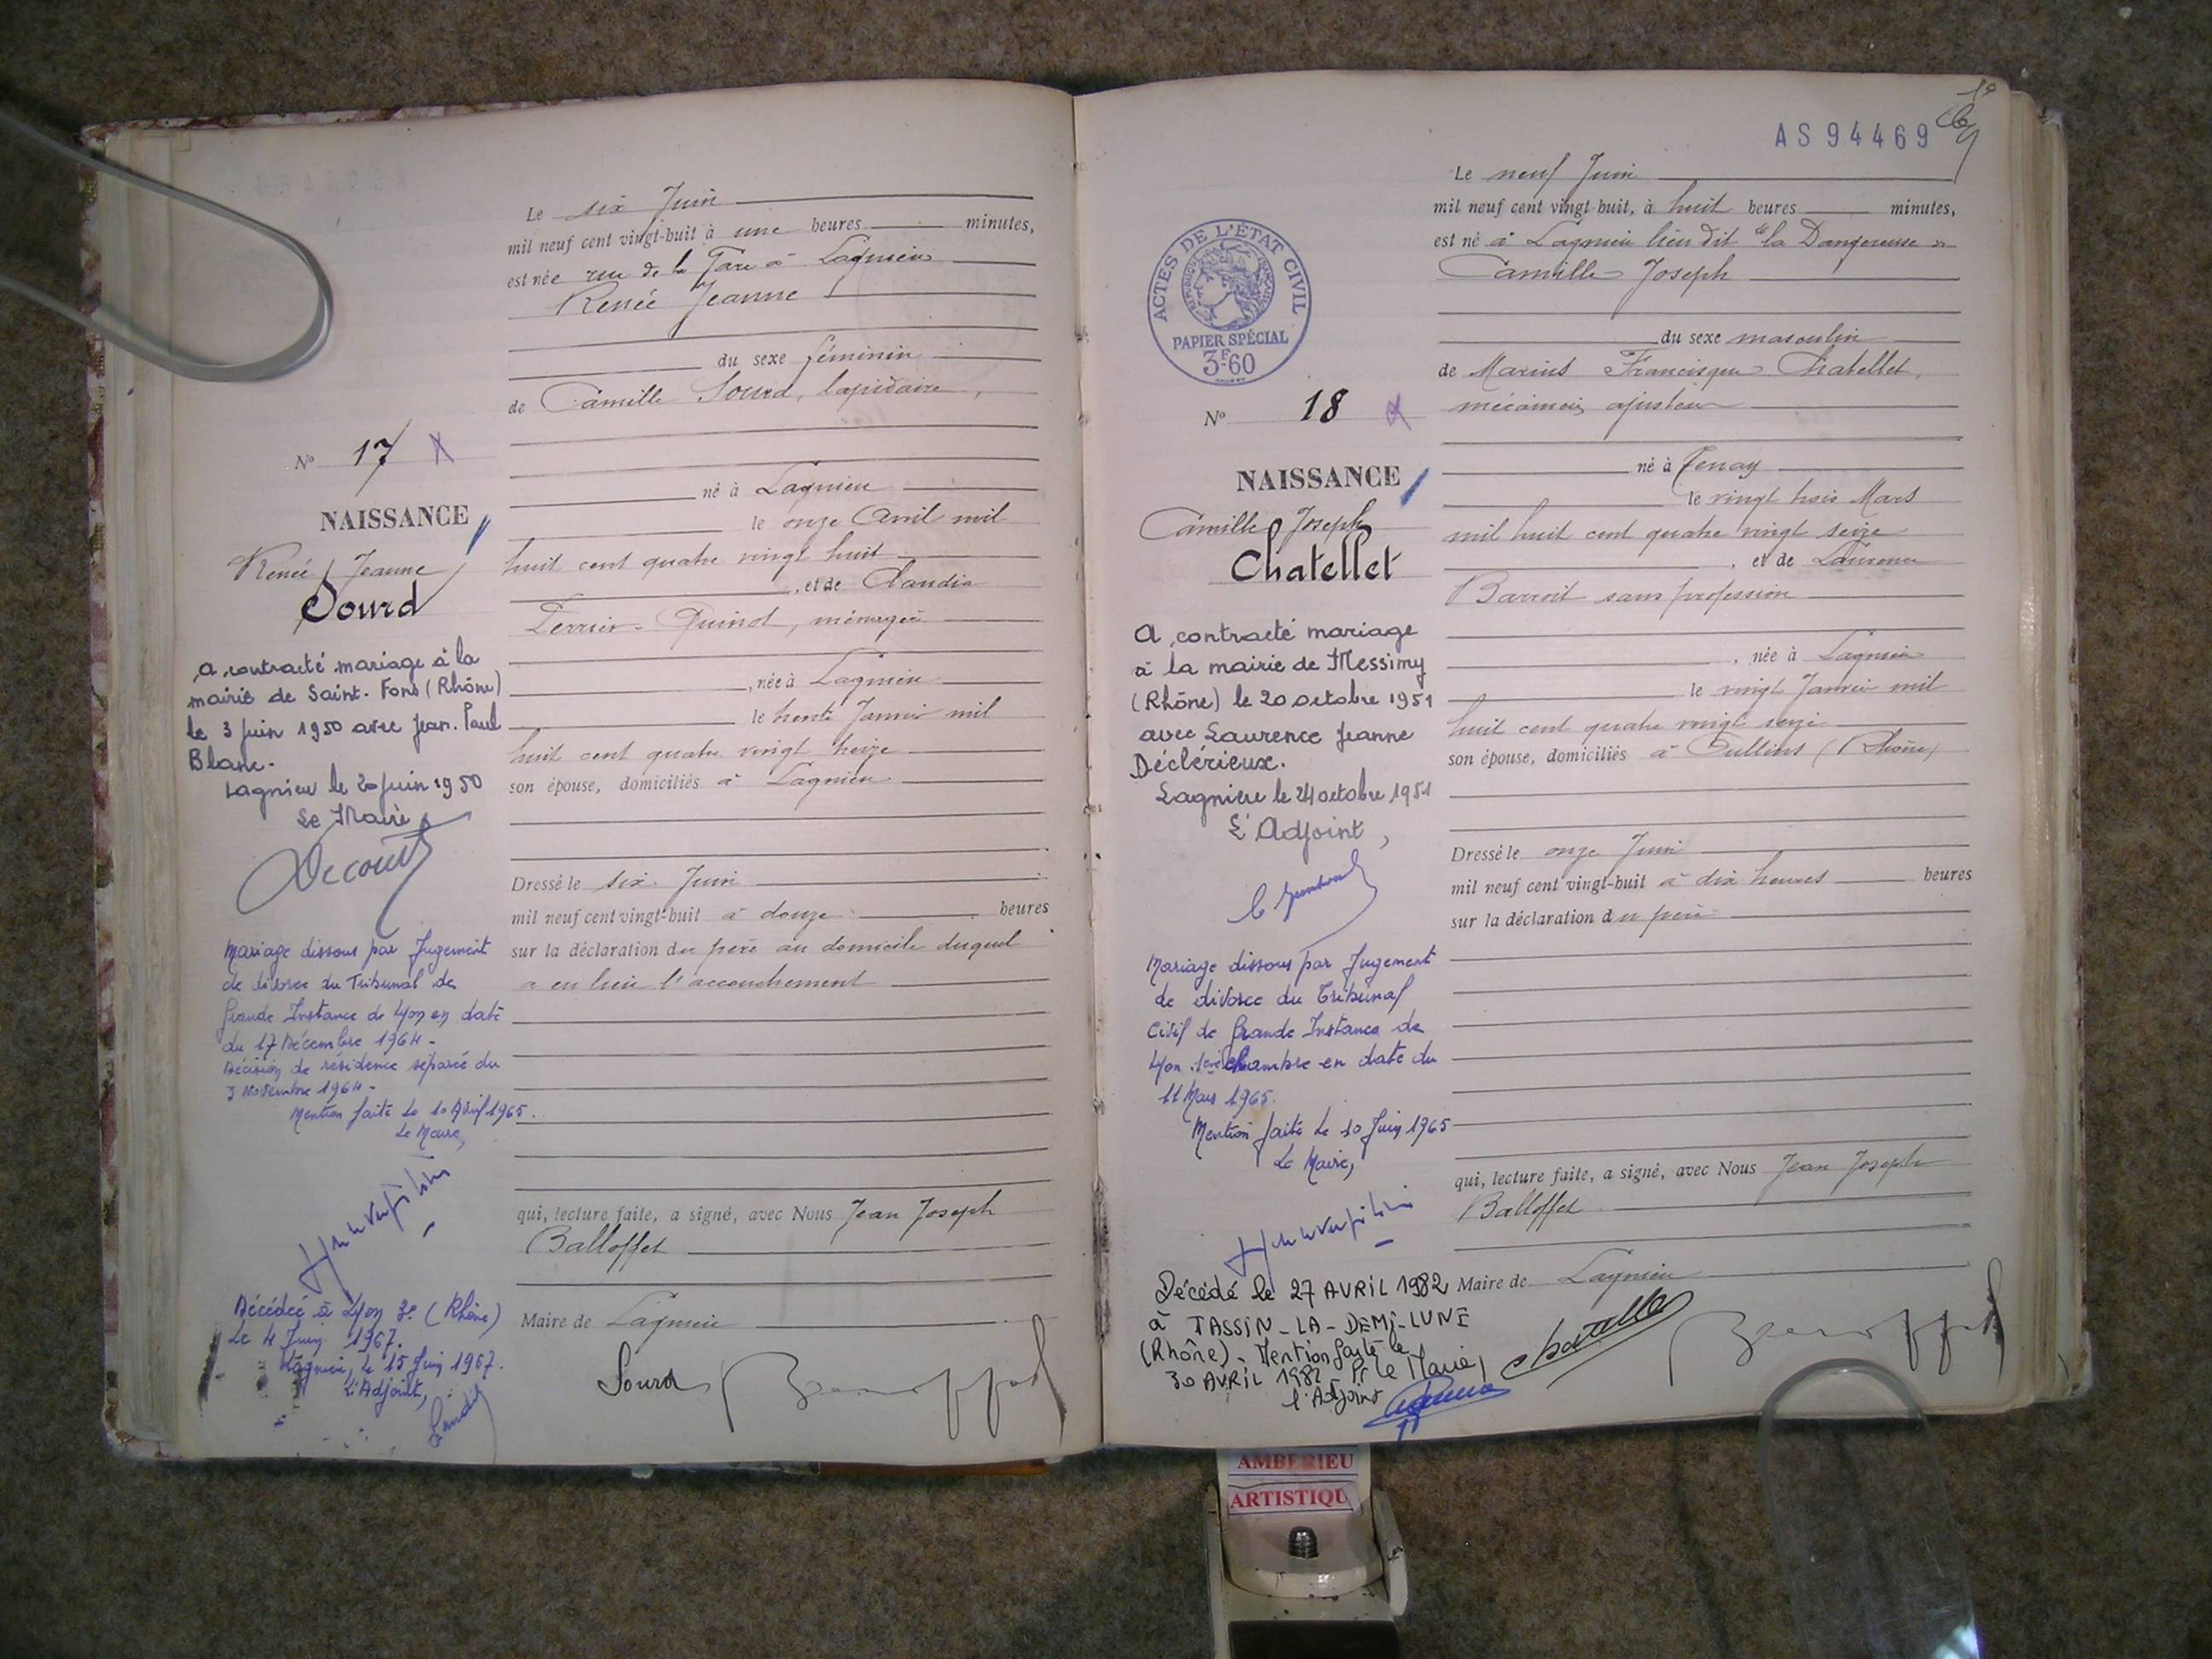 Le six Juin
mil neuf cent vingt-huit à une heures minutes,
est née rue de la Gare à Lagnieu
Renée Jeanne
du sexe féminin
de Camille Sourd, lapidaire,
né à Lagnieu
le onze Avril mil
huit cent quatre vingt huit
, et de Claudia
Perrier-Quinot, ménagère
, née à Lagnieu
le trente Janvier mil
huit cent quatre vingt treize
son épouse, domiciliés à Lagnieu
Dressé le six Juin
mil neuf cent vingt-huit à douze heures
sur la déclaration du père au domicile duquel
a eu lieu l'accouchement
qui, lecture faite, a signé, avec Nous Jean Joseph
Balloffet
Maire de Lagnieu
Sourd
No 17
NAISSANCE
Renée Jeanne
Sourd
a contracté mariage à la
mairie de Saint-Fons (Rhône)
le 3 juin 1950 avec Jean-Paul
Blanc.
Lagnieu le 20 juin 1950
Le Maire
Mariage dissous par Jugement
de divorce du Tribunal de
Grande Instance de Lyon en date
du 17 Décembre 1964-
Décision de résidence séparée du
3 Novembre 1964-
Mention faite le 10 Avril 1965.
Le Maire,
Décédée à Lyon 3e (Rhône)
Le 4 Juin 1967.
Lagnieu, le 15 Juin 1967.
L'Adjoint,
AS 94469
Le neuf Juin
mil neuf cent vingt-huit, à huit heures minutes,
est né à Lagnieu lieu dit "la Dangereuse"
Camille Joseph
du sexe masculin
de Marius Francisque Chatellet,
mécanicien ajusteur
né à Tenay
le vingt trois Mars
mil huit cent quatre vingt seize
, et de Laurence
Barroit sans profession
, née à Lagnieu
le vingt Janvier mil
huit cent quatre vingt seize
son épouse, domiciliés à Oullins (Rhône)
Dressé le onze Juin
mil neuf cent vingt-huit à dix heures heures
sur la déclaration du père
qui, lecture faite, a signé, avec Nous Jean Joseph
Balloffet
Maire de Lagnieu
ACTES DE L'ÉTAT CIVIL
RÉPUBLIQUE FRANÇAISE
PAPIER SPÉCIAL
3F60
No 18
NAISSANCE
Camille Joseph
Chatellet
A contracté mariage
à la mairie de Messimy
(Rhône) le 20 octobre 1951
avec Laurence Jeanne
Déclérieux.
Lagnieu le 24 octobre 1951
L'Adjoint,
Mariage dissous par Jugement
de divorce du Tribunal
Civil de Grande Instance de
Lyon 1ère chambre en date du
11 Mars 1965.
Mention faite le 10 Juin 1965
Le Maire,
Décédé le 27 AVRIL 1982
à TASSIN-LA-DEMI-LUNE
(Rhône). Mention faite le
30 AVRIL 1982 Pr le Maire,
l'Adjoint
AMBERIEU
ARTISTIQU